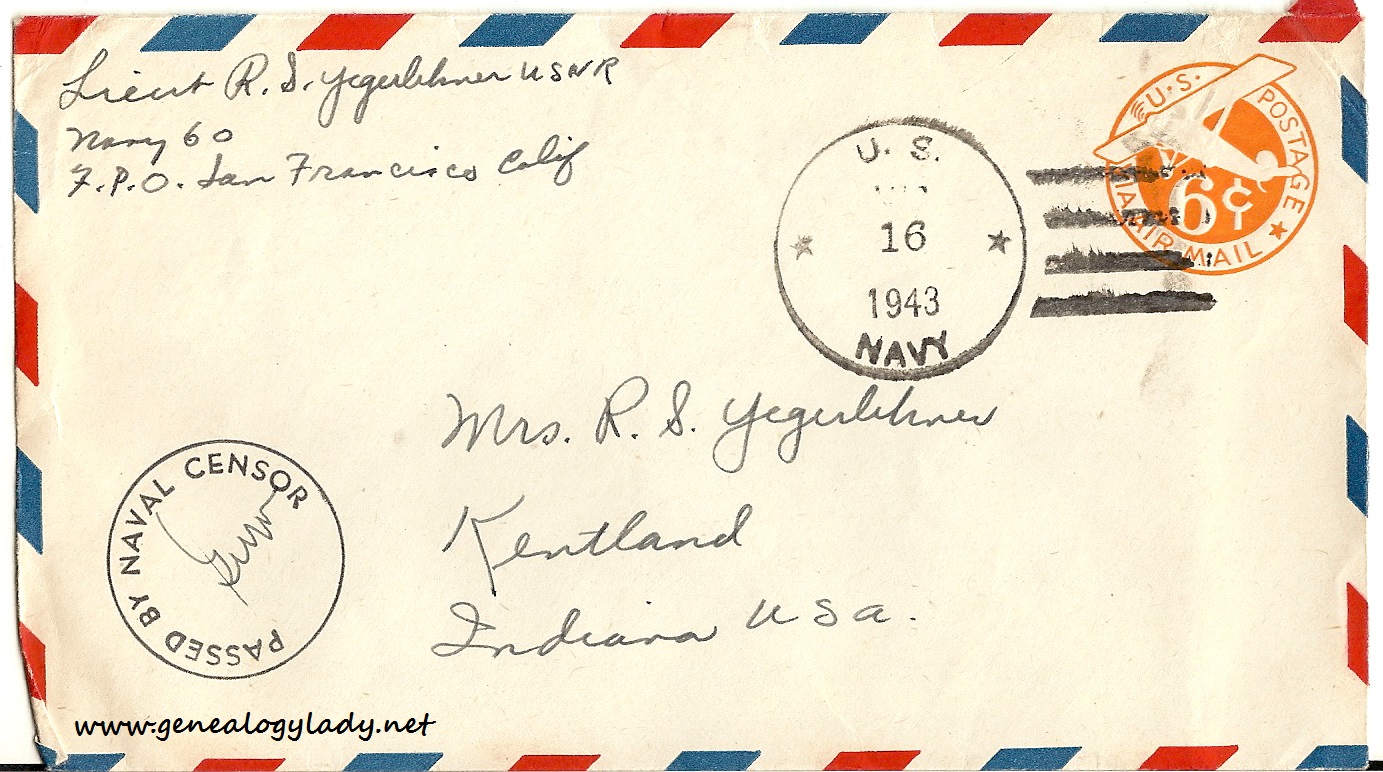 Lieut R. S. Yegerlehner USNR
Navy 60
F.P.O. San Francisco Calif
U.S. POSTAGE
6¢
VIA AIR MAIL
U. S.
16
1943
NAVY
Mrs. R. S. Yegerlehner
Kentland
Indiana USA.
PASSED BY NAVAL CENSOR
www.genealogylady.net